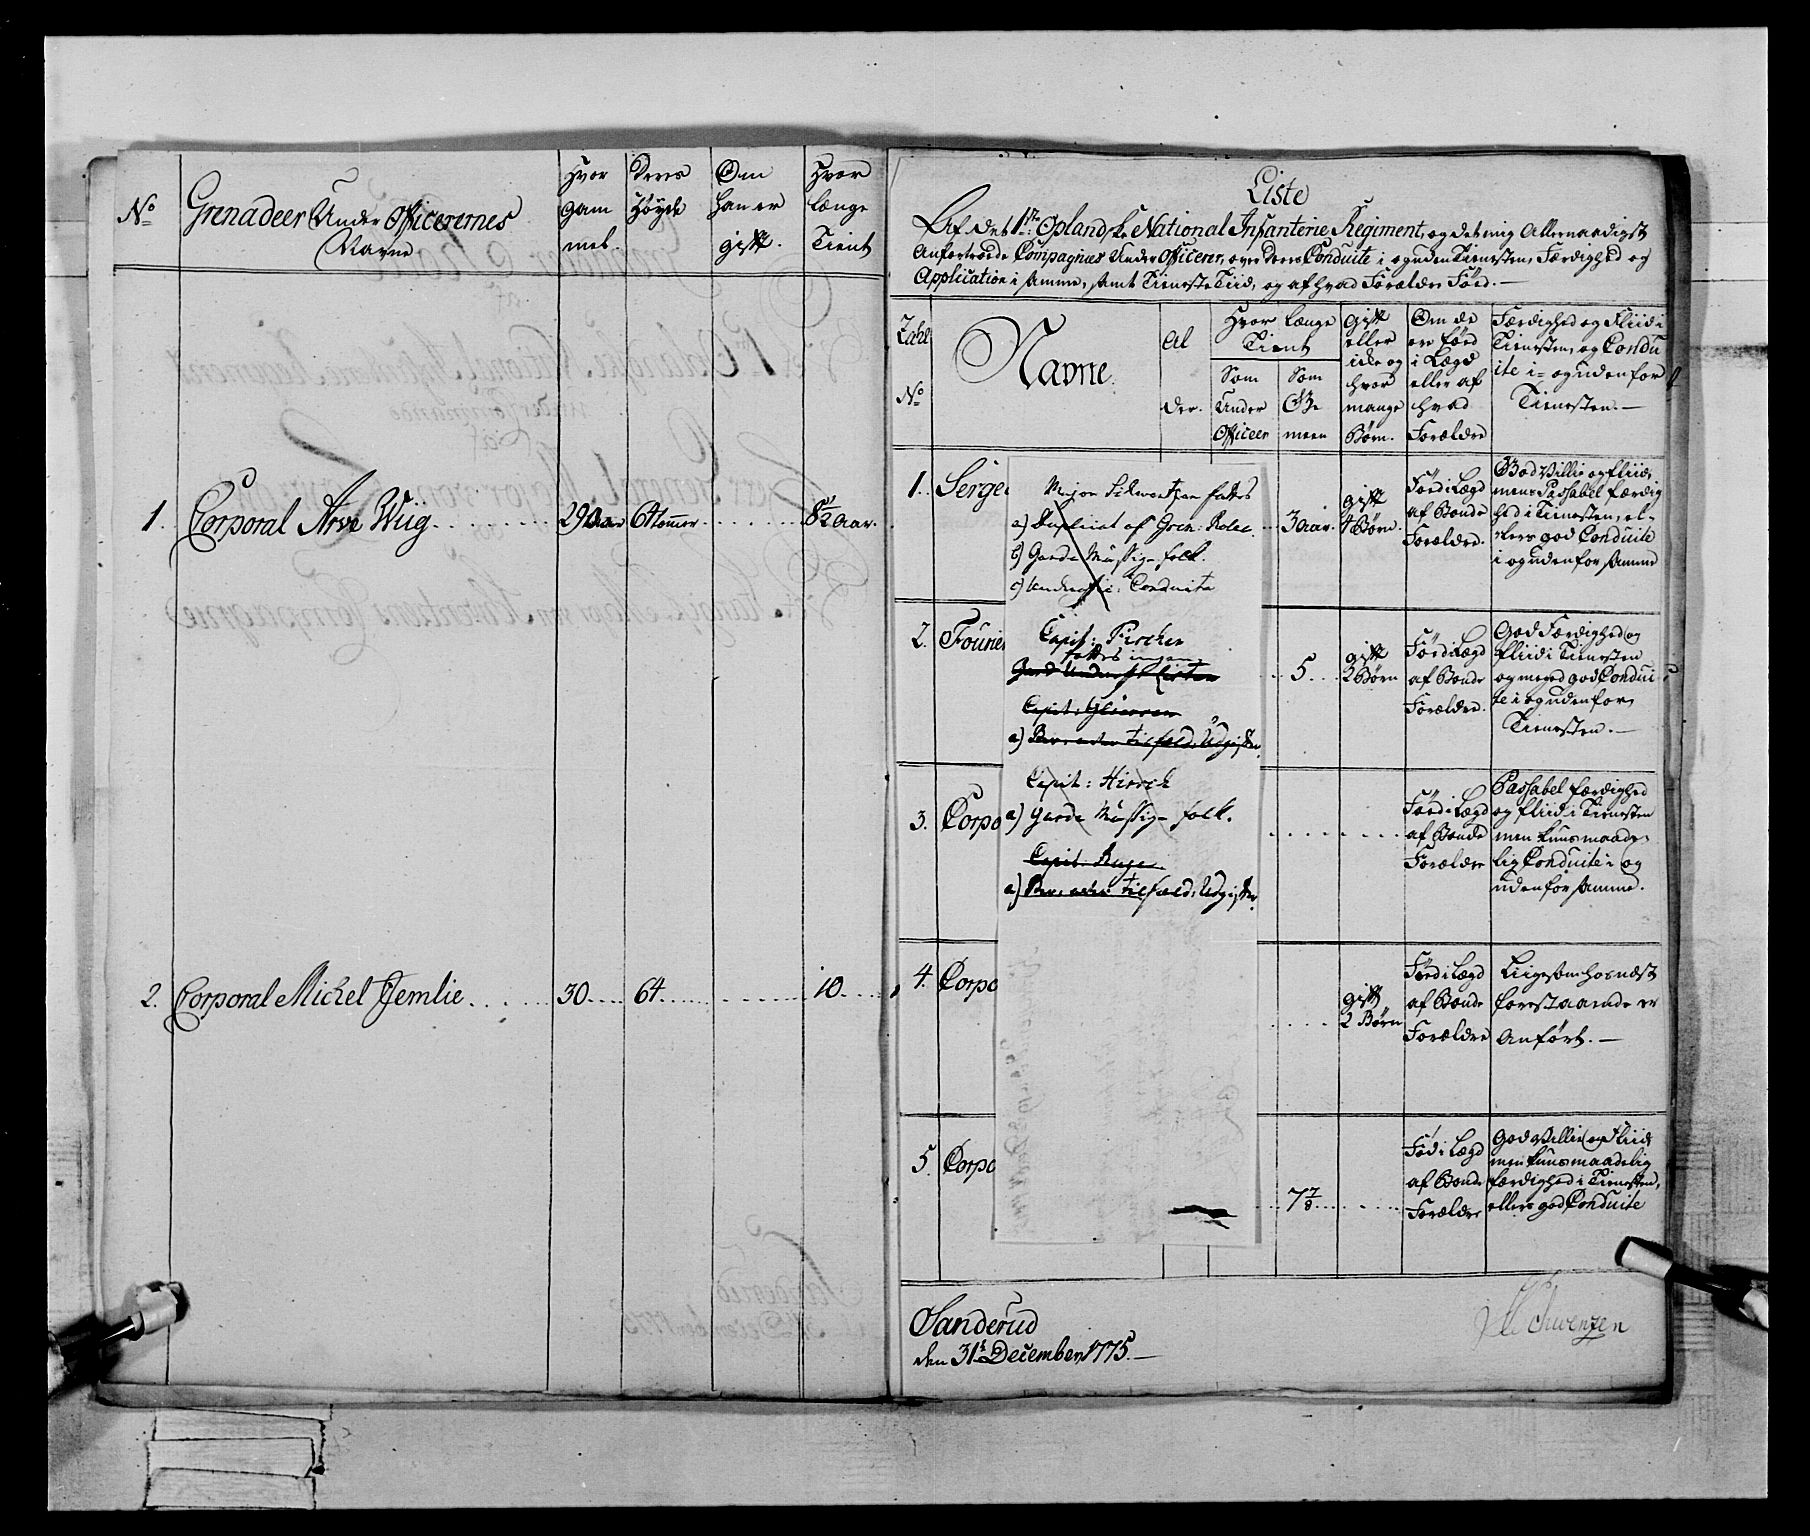 No
Grenadeer Under Officerernes
Navne
Hvor
gam
mel.
Deres
Høyde
Om
han er
gift.
Hvor
længe
Tient
1. Corporal Arve Wiig 29 Aar 64 tommer 8 1/2 aar.
2. Corporal Michel Jemlie 30 64 10
Liste
Af det 1ste Oplandske National Infanterie Regiment, og det mig Allernaadigst
Anfortroede Compagnies Under Officerer, over deres Conduite i og uden Tienesten, Færdighed og
Application i samme, samt Tieneste Tiid, og af hvad Forældre Fød.—
Zahl
No
Navne
Al
der.
Hvor længe
Tient
Som
Under
Officeer
Som
Ge
meen
Gift
eller
ide og
hvor
mange
Børn.
Om de
er fød
i Lægd
eller af
hvad
Forældre
Færdighed og Fliid i
Tienesten, og Condu
ite i- og uden for
Tienesten.—
1. Serge
3 aar.
gift
4 Børn.
Fød i Lægd
af Bonde
Forældre.
God Villie og fliid,
men Passabel færdig
hed i Tienesten, el-
lers god Conduite
i og uden for samme
2. Fourie
5
gift
2 Børn
Fød i Lægd
af Bonde
Forældre.
God Færdighed og
fliid i Tienesten
og meged god Condui
te i og uden for
Tienesten.—
3. Corpo
Fød i Lægd
af Bonde
Forældre
Passabel færdighed
og fliid i Tienesten
men kuns maade-
lig Conduite i og
uden for samme.
4. Corpo
gift
2 Børn
Fød i Lægd
af Bonde
Forældre
Liigesom hos næst
forestaaende er
Anført.—
5. Corpo
7 7/8
Fød i Lægd
af Bonde
Forældre
God Villie og Fliid
men kuns maadelig
færdighed i Tienesten,
ellers god Conduite
Major Schwentzen fattes
a) Duplicat af Gren: Rolle
b) Garde Mussig- folk.
c) Conduite
Capit: Fischer
fattes ingen
Capit:
a) tilfæld: Udgifter
Capit: Hirsch
a) Garde Mussig- folk.
Capit:
a) tilfæld: Udgifter
Sanderud
den 31te December 1775.—
Schwenzen